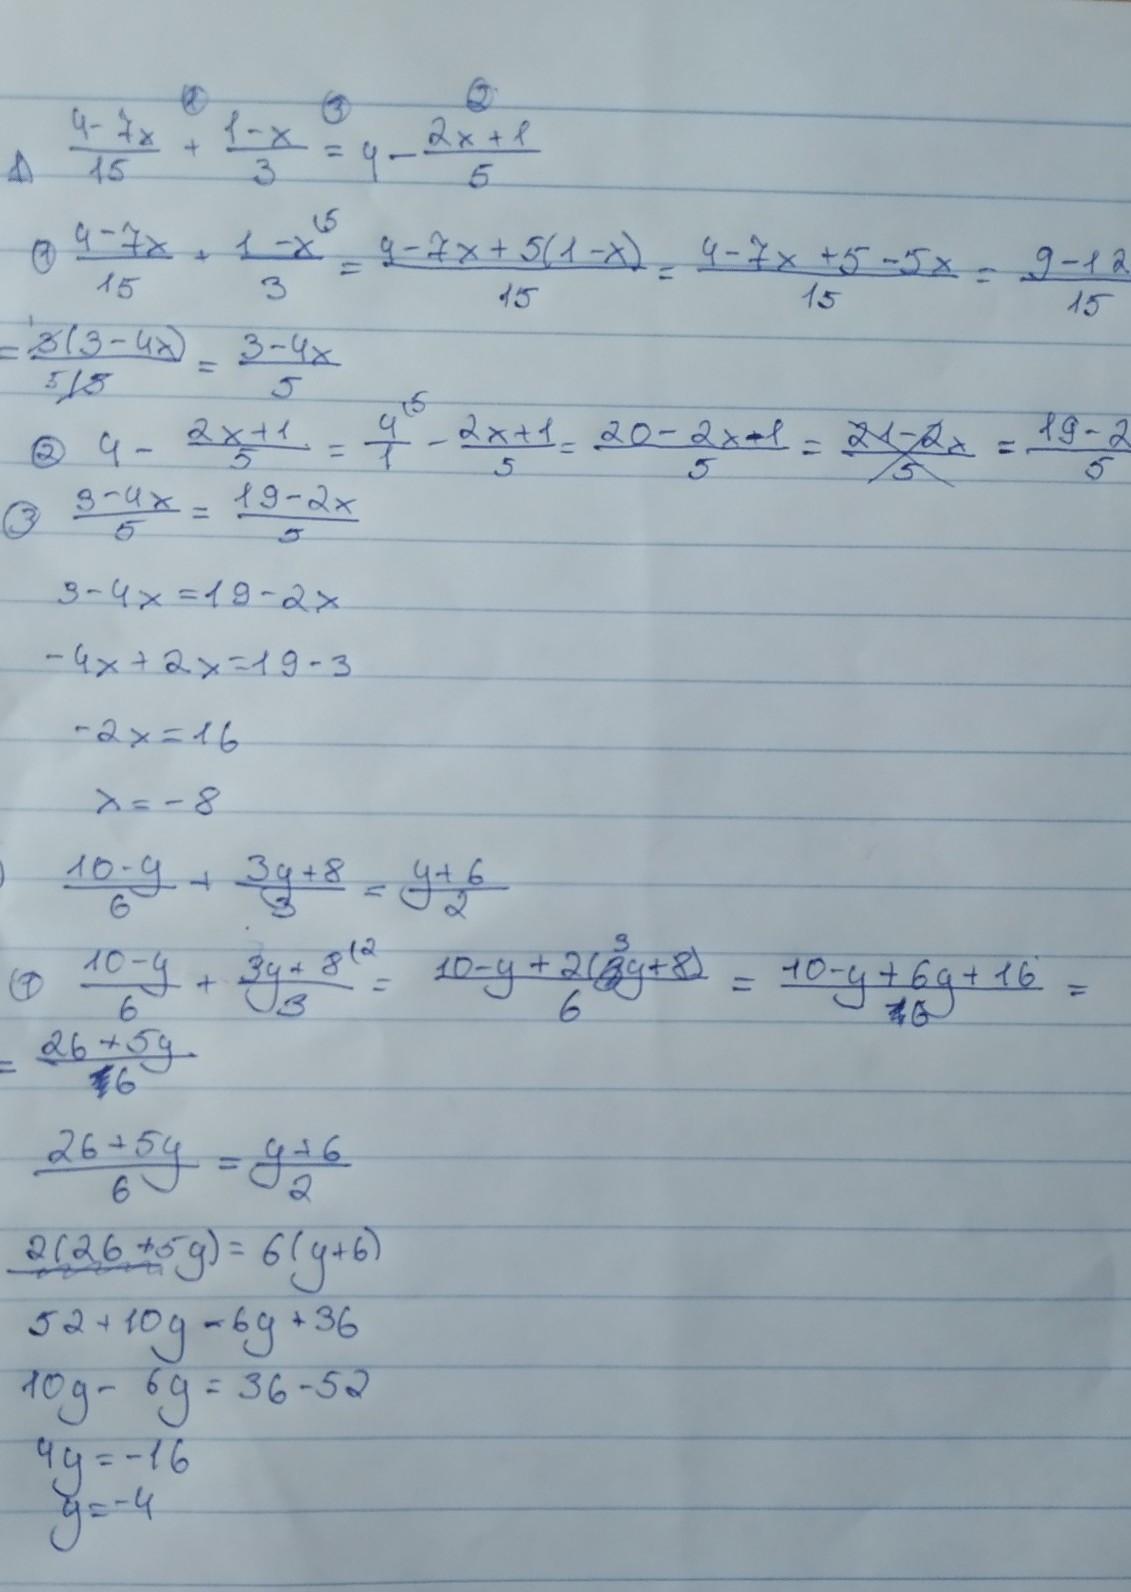 ① ③ ②
1) (4-7x)/15 + (1-x)/3 = 4 - (2x+1)/5
① (4-7x)/15 + (1-x)/3 (5 = (4-7x+5(1-x))/15 = (4-7x+5-5x)/15 = (9-12)/15
= 3(3-4x)/15 = (3-4x)/5
② 4 - (2x+1)/5 = 4/1 (5 - (2x+1)/5 = (20-2x-1)/5 = (21-2x)/5 = (19-2)/5
③ (3-4x)/5 = (19-2x)/5
3-4x=19-2x
-4x+2x=19-3
-2x=16
x=-8
) (10-y)/6 + (3y+8)/3 = (y+6)/2
① (10-y)/6 + (3y+8)/3 (2 = (10-y+2(3y+8))/6 = (10-y+6y+16)/6 =
= (26+5y)/6
(26+5y)/6 = (y+6)/2
2(26+5y)=6(y+6)
52+10y=6y+36
10y-6y=36-52
4y=-16
y=-4